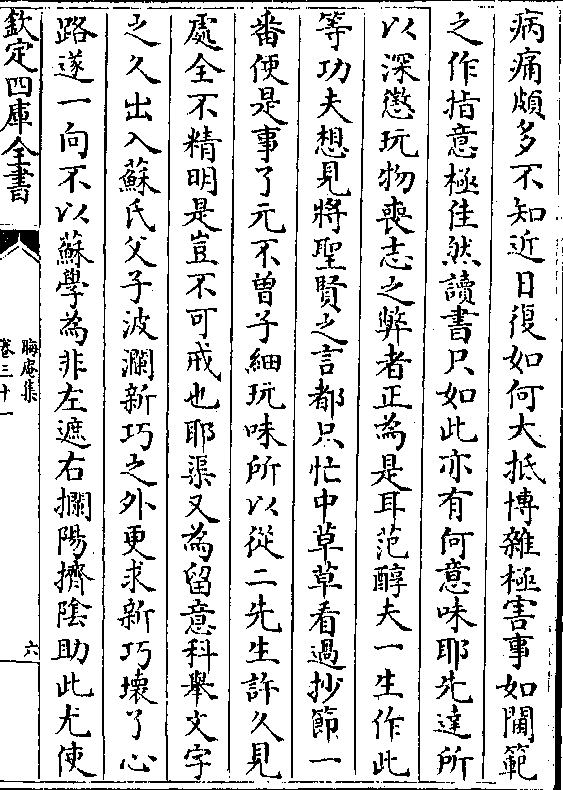 病痛頗多不知近日復如何大抵博雜極害事如閫範
之作指意極佳然讀書只如此亦有何意味耶先達所
以深懲玩物喪志之弊者正為是耳范醇夫一生作此
等功夫想見將聖賢之言都只忙中草草看過抄節一
番便是事了元不曾子細玩味所以從二先生許久見
處全不精明是豈不可戒也耶渠又為留意科舉文字
之久出入蘇氏父子波瀾新巧之外更求新巧壞了心
路遂一向不以蘇學為非左遮右攔陽擠陰助此尤使
欽定四庫全書
晦庵集
卷三十一
六